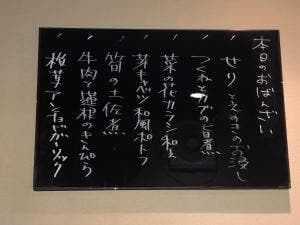 本日のおばんざい
せりとえのきのお浸し
つくねとカブの旨煮
菜の花カラシ和え
芽キャベツ和風ポトフ
筍の土佐煮
牛肉と蓮根のきんぴら
椎茸アンチョビガーリック